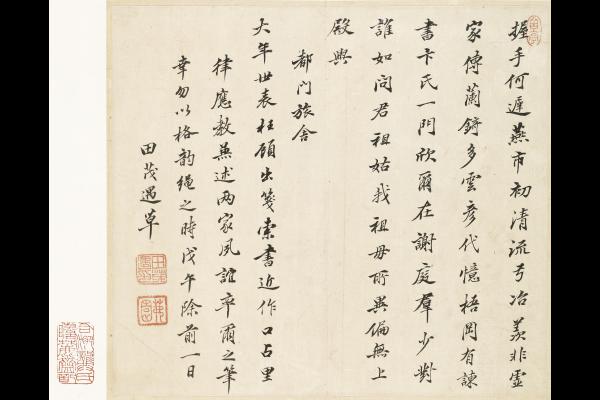 握手何遲燕市初清流弓冶羨非虛
家傳蘭錡多雲彥代憶梧岡有諫
書卞氏一門欣爾在謝庭群少對
誰如問君祖姑我祖母所異偏無上
殿輿
都門旅舍
大年世表枉顧出箋索書近作口占里
律應教兼述兩家夙誼卒爾之筆
幸勿以格韵繩之時戊午除前一日
田茂遇草